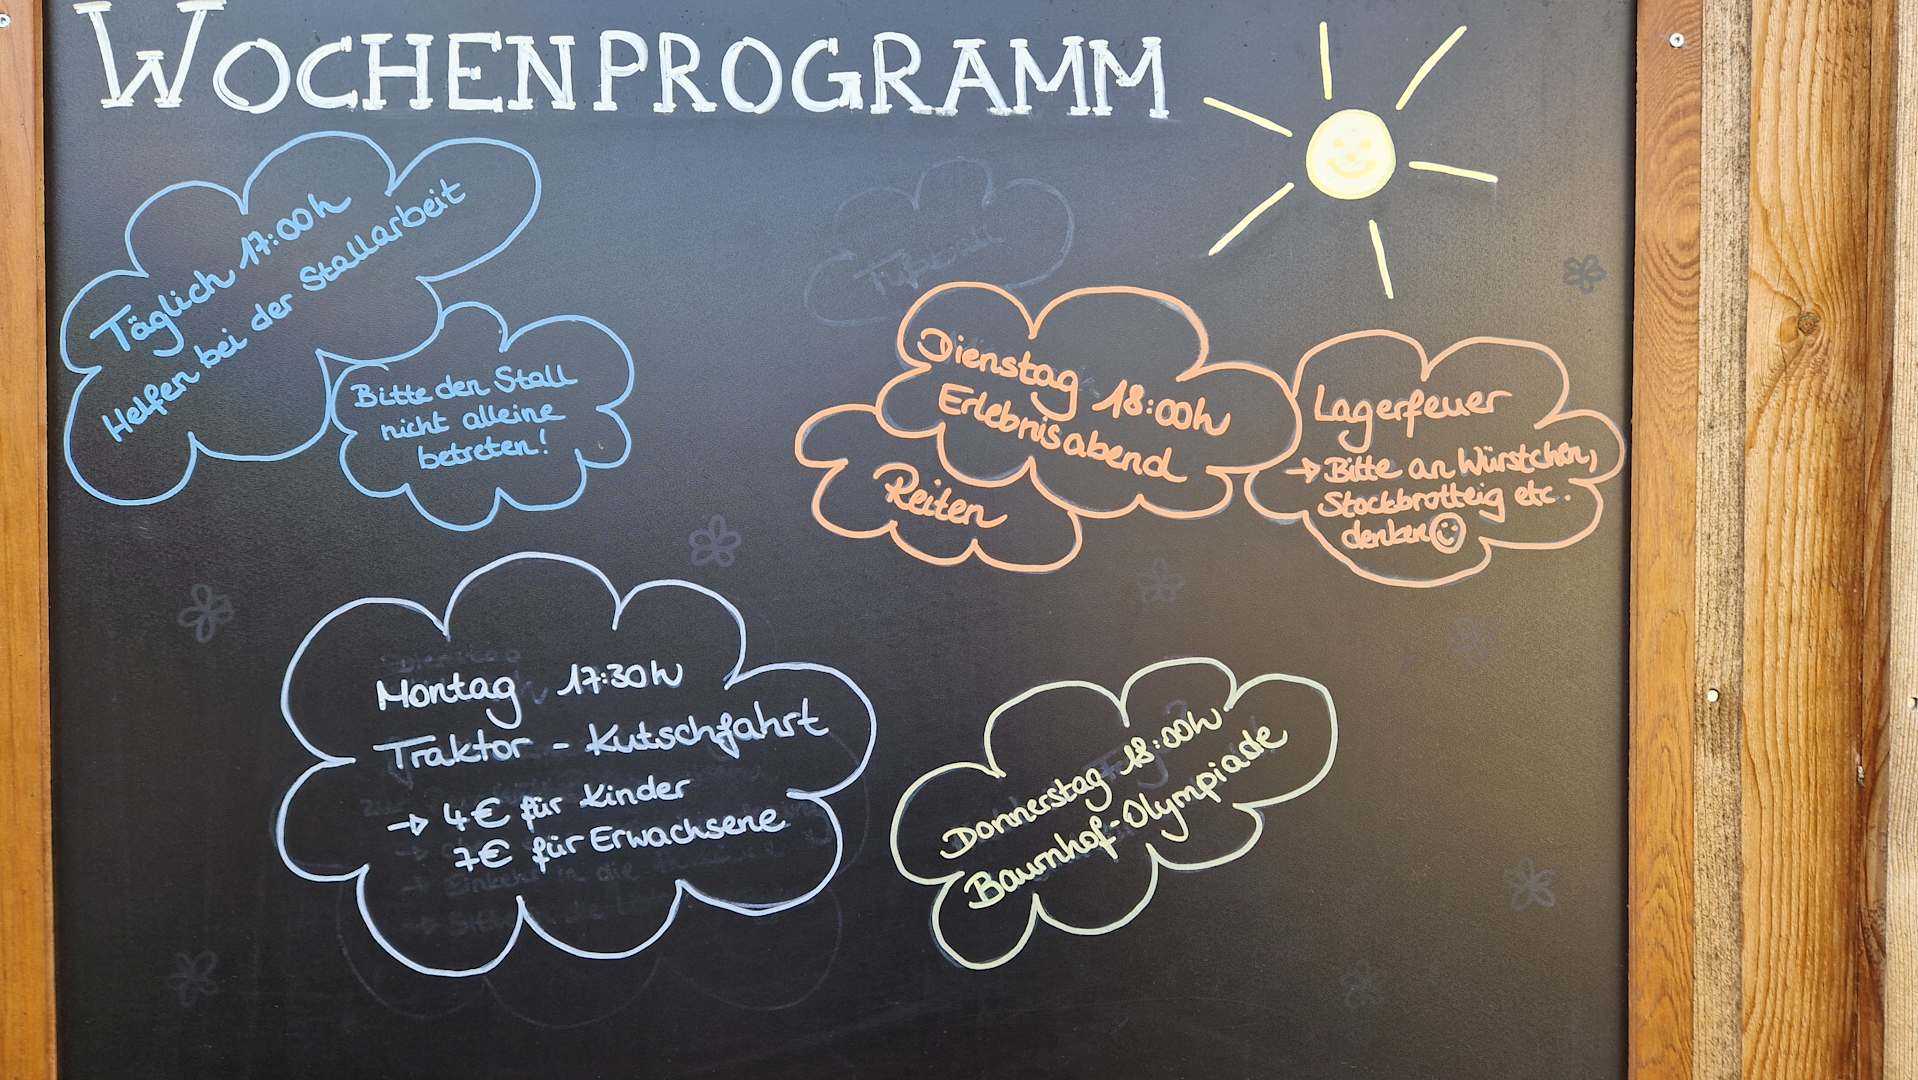 WOCHENPROGRAMM
Täglich 17:00h
Helfen bei der Stallarbeit
Bitte den Stall
nicht alleine
betreten!
Dienstag 18:00h
Erlebnisabend
Reiten
Lagerfeuer
→ Bitte an Würstchen,
Stockbrotteig etc.
denken ☺
Montag 17:30h
Traktor - Kutschfahrt
→ 4€ für Kinder
7€ für Erwachsene
Donnerstag 18:00h
Baurnhof-Olympiade